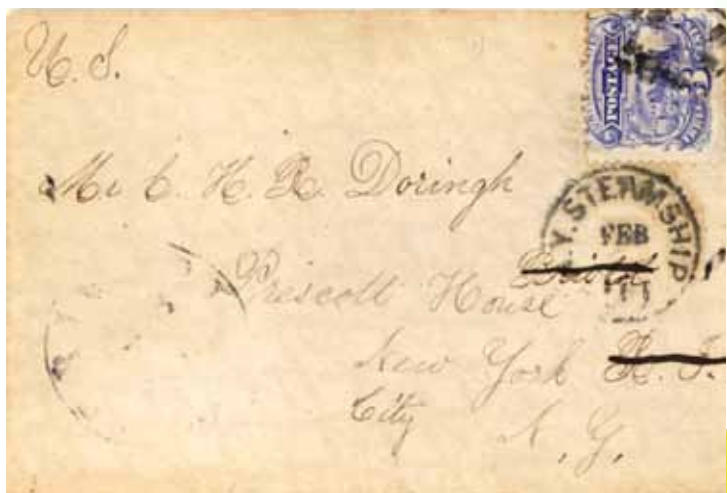 U. S.
POSTAGE
Mr C. H. R. Doringh
N.Y. STEAMSHIP
FEB
Bristol
Prescott House
New York R. I.
City
N. Y.